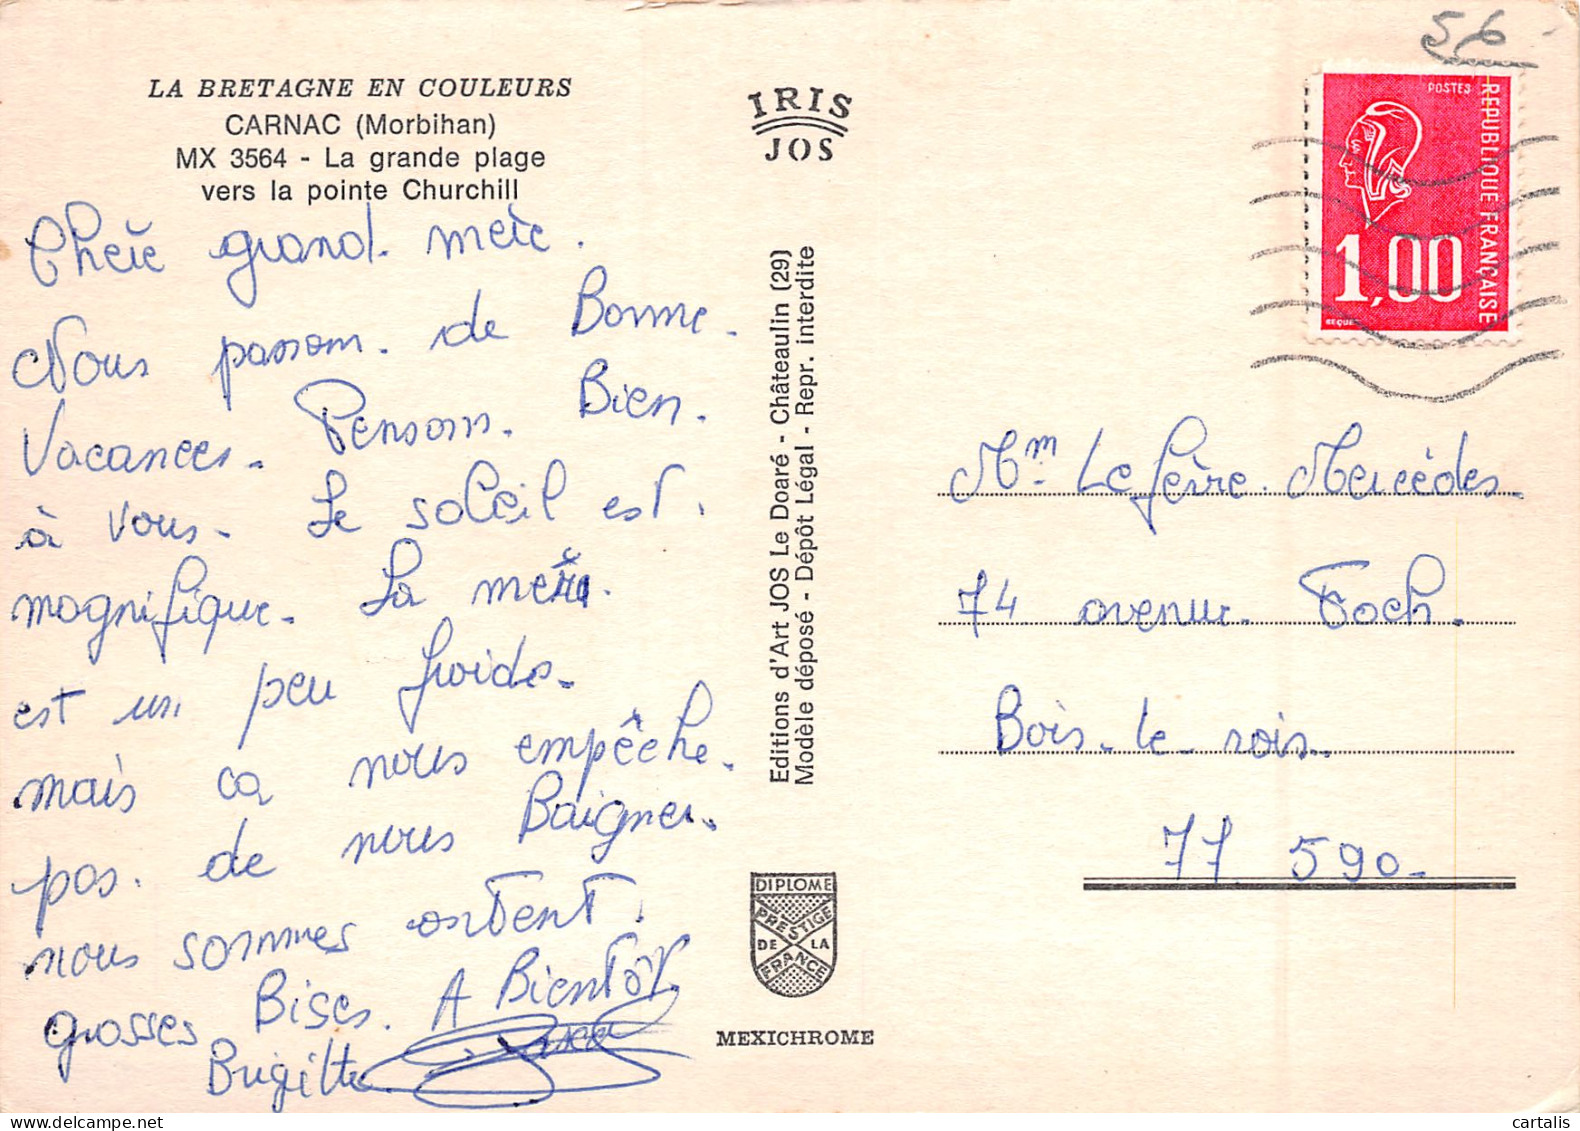 LA BRETAGNE EN COULEURS
CARNAC (Morbihan)
MX 3564 - La grande plage
vers la pointe Churchill
Chère grand. mère.
Nous passons. de Bonne.
Vacances. Pensons. Bien.
à vous. Le soleil est.
magnifique. La mère.
est un peu froide.
mais ca nous empêche.
pas. de nous Baigner.
nous sommes content.
grosses Bises. A Bientôt.
Brigitte
IRIS
JOS
Editions d'Art JOS Le Doaré - Châteaulin (29)
Modèle déposé - Dépôt Légal - Repr. interdite
DIPLOME
PRESTIGE
DE LA
FRANCE
MEXICHROME
56
POSTES
REPUBLIQUE FRANÇAISE
1,00
BEQUET
Mm Lefèvre. Mercédes.
74 avenue. Foch.
Bois-le-rois.
77 590.
cartalis